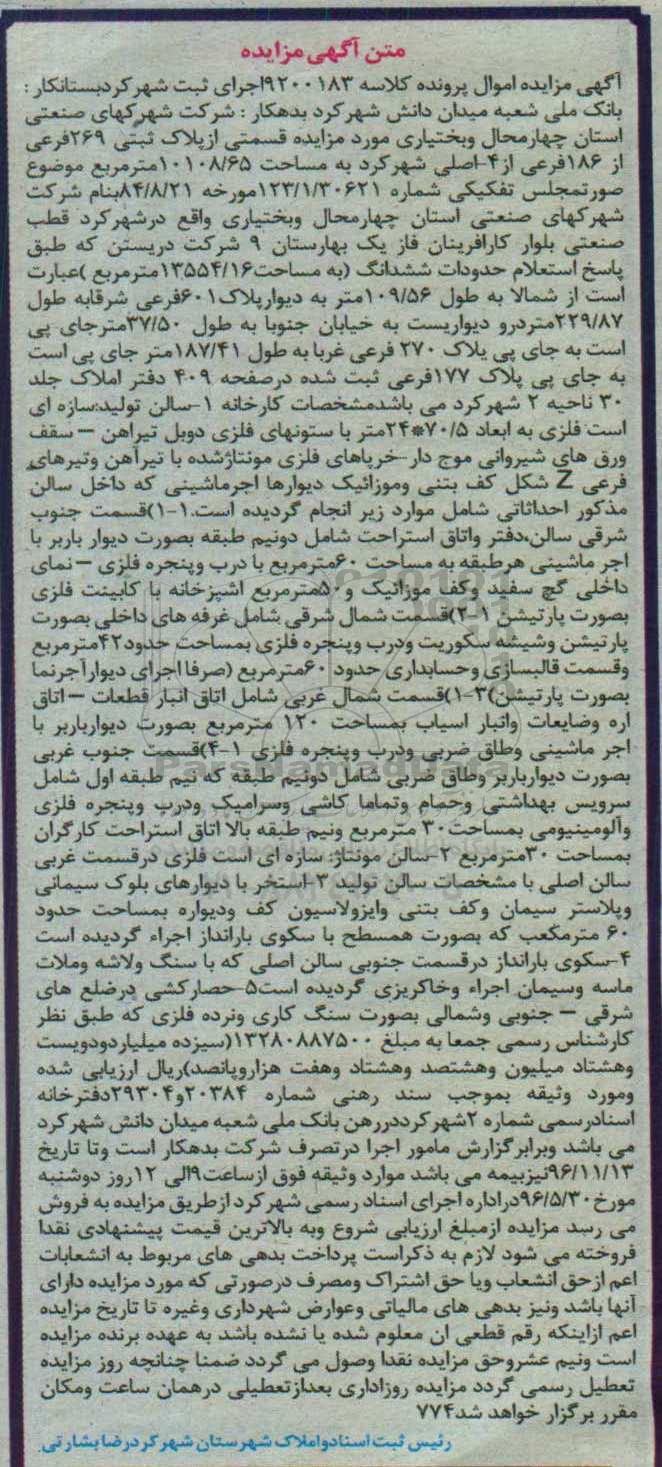 متن آگهی مزایده
آگهی مزایده اموال پرونده کلاسه ۹۲۰۰۱۸۳اجرای ثبت شهرکردبستانکار :
بانک ملی شعبه میدان دانش شهرکرد بدهکار : شرکت شهرکهای صنعتی
استان چهارمحال وبختیاری مورد مزایده قسمتی ازپلاک ثبتی ۲۶۹فرعی
از ۱۸۶فرعی از۴-اصلی شهرکرد به مساحت ۱۰۱۰۸/۶۵مترمربع موضوع
صورتمجلس تفکیکی شماره ۱۲۳/۱/۳۰۶۲۱مورخه ۸۴/۸/۲۱بنام شرکت
شهرکهای صنعتی استان چهارمحال وبختیاری واقع درشهرکرد قطب
صنعتی بلوار کارافرینان فاز یک بهارستان ۹ شرکت دریستن که طبق
پاسخ استعلام حدودات ششدانگ (به مساحت۱۳۵۵۴/۱۶مترمربع )عبارت
است از شمالا به طول ۱۰۹/۵۶متر به دیوارپلاک۶۰۱فرعی شرقابه طول
۲۲۹/۸۷متردرو دیواریست به خیابان جنوبا به طول ۳۷/۵۰مترجای پی
است به جای پی پلاک ۲۷۰ فرعی غربا به طول ۱۸۷/۴۱متر جای پی است
به جای پی پلاک ۱۷۷فرعی ثبت شده درصفحه ۴۰۹ دفتر املاک جلد
۳۰ ناحیه ۲ شهرکرد می باشدمشخصات کارخانه ۱-سالن تولید:سازه ای
است فلزی به ابعاد ۷۰/۵*۲۴متر با ستونهای فلزی دوبل تیراهن – سقف
ورق های شیروانی موج دار-خرپاهای فلزی مونتاژشده با تیرآهن وتیرهای
فرعی Z شکل کف بتنی وموزائیک دیوارها اجرماشینی که داخل سالن
مذکور احداثاتی شامل موارد زیر انجام گردیده است.۱-۱)قسمت جنوب
شرقی سالن،دفتر واتاق استراحت شامل دونیم طبقه بصورت دیوار باربر با
اجر ماشینی هرطبقه به مساحت ۶۰مترمربع با درب وپنجره فلزی – نمای
داخلی گچ سفید وکف موزائیک و۵۰مترمربع اشپزخانه با کابینت فلزی
بصورت پارتیشن ۱-۲)قسمت شمال شرقی شامل غرفه های داخلی بصورت
پارتیشن وشیشه سکوریت ودرب وپنجره فلزی بمساحت حدود۴۲مترمربع
وقسمت قالبسازی وحسابداری حدود ۶۰مترمربع (صرفا اجرای دیوارآجرنما
بصورت پارتیشن)۳-۱)قسمت شمال غربی شامل اتاق انبار قطعات – اتاق
اره وضایعات وانبار اسیاب بمساحت ۱۲۰ مترمربع بصورت دیوارباربر با
اجر ماشینی وطاق ضربی ودرب وپنجره فلزی ۱-۴)قسمت جنوب غربی
بصورت دیوارباربر وطاق ضربی شامل دونیم طبقه که نیم طبقه اول شامل
سرویس بهداشتی وحمام وتماما کاشی وسرامیک ودرب وپنجره فلزی
وآلومینیومی بمساحت۳۰ مترمربع ونیم طبقه بالا اتاق استراحت کارگران
بمساحت ۳۰مترمربع ۲-سالن مونتاژ: سازه ای است فلزی درقسمت غربی
سالن اصلی با مشخصات سالن تولید ۳-استخر با دیوارهای بلوک سیمانی
وپلاستر سیمان وکف بتنی وایزولاسیون کف ودیواره بمساحت حدود
۶۰ مترمکعب که بصورت همسطح با سکوی بارانداز اجراء گردیده است
۴-سکوی بارانداز درقسمت جنوبی سالن اصلی که با سنگ ولاشه وملات
ماسه وسیمان اجراء وخاکریزی گردیده است۵-حصارکشی درضلع های
شرقی – جنوبی وشمالی بصورت سنگ کاری ونرده فلزی که طبق نظر
کارشناس رسمی جمعا به مبلغ ۱۳۲۸۰۸۸۷۵۰۰(سیزده میلیاردودویست
وهشتاد میلیون وهشتصد وهشتاد وهفت هزاروپانصد)ریال ارزیابی شده
ومورد وثیقه بموجب سند رهنی شماره ۲۰۳۸۴و۲۹۳۰۴دفترخانه
اسنادرسمی شماره ۲شهرکرددررهن بانک ملی شعبه میدان دانش شهرکرد
می باشد وبرابرگزارش مامور اجرا درتصرف شرکت بدهکار است وتا تاریخ
۹۶/۱۱/۱۳نیزبیمه می باشد موارد وثیقه فوق ازساعت۹الی ۱۲روز دوشنبه
مورخ۹۶/۵/۳۰دراداره اجرای اسناد رسمی شهرکرد ازطریق مزایده به فروش
می رسد مزایده ازمبلغ ارزیابی شروع وبه بالاترین قیمت پیشنهادی نقدا
فروخته می شود لازم به ذکراست پرداخت بدهی های مربوط به انشعابات
اعم ازحق انشعاب ویا حق اشتراک ومصرف درصورتی که مورد مزایده دارای
آنها باشد ونیز بدهی های مالیاتی وعوارض شهرداری وغیره تا تاریخ مزایده
اعم ازاینکه رقم قطعی ان معلوم شده یا نشده باشد به عهده برنده مزایده
است ونیم عشروحق مزایده نقدا وصول می گردد ضمنا چنانچه روز مزایده
تعطیل رسمی گردد مزایده روزاداری بعدازتعطیلی درهمان ساعت ومکان
مقرر برگزار خواهد شد۷۷۴
رئیس ثبت اسنادواملاک شهرستان شهرکردرضا بشارتی.